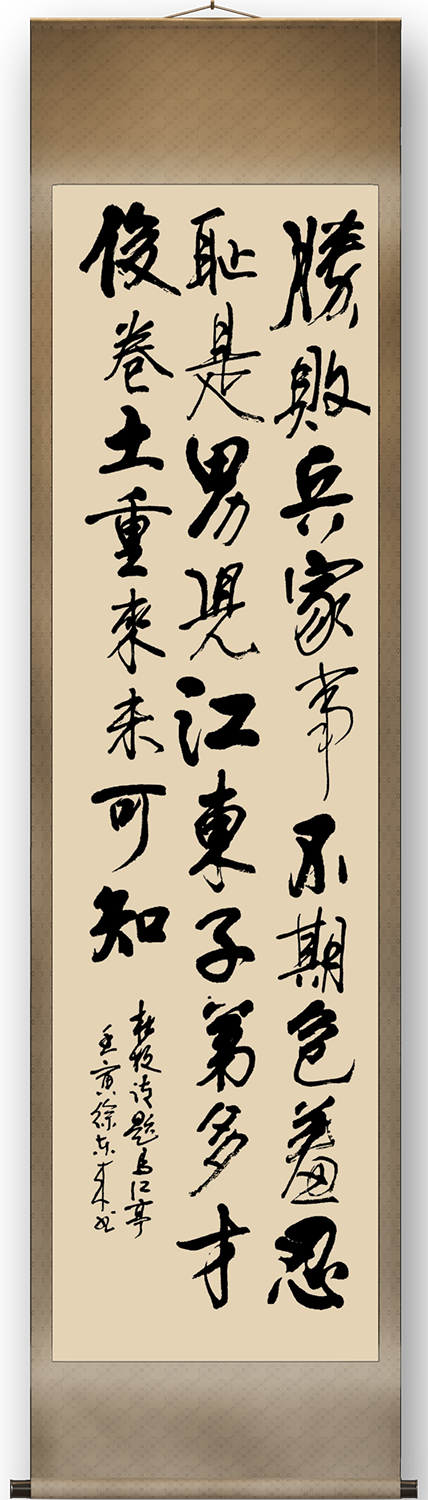 勝敗兵家常不期包羞忍
恥是男児江東子弟多才
俊卷土重來未可知
杜牧诗题乌江亭
壬寅徐东来书